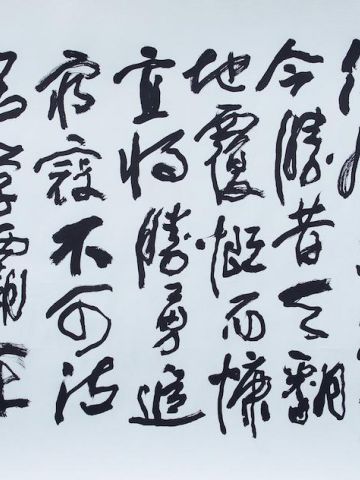 今勝昔天翻
地覆慨而慷
宜将勝勇追
穷寇不可沽
名学霸王